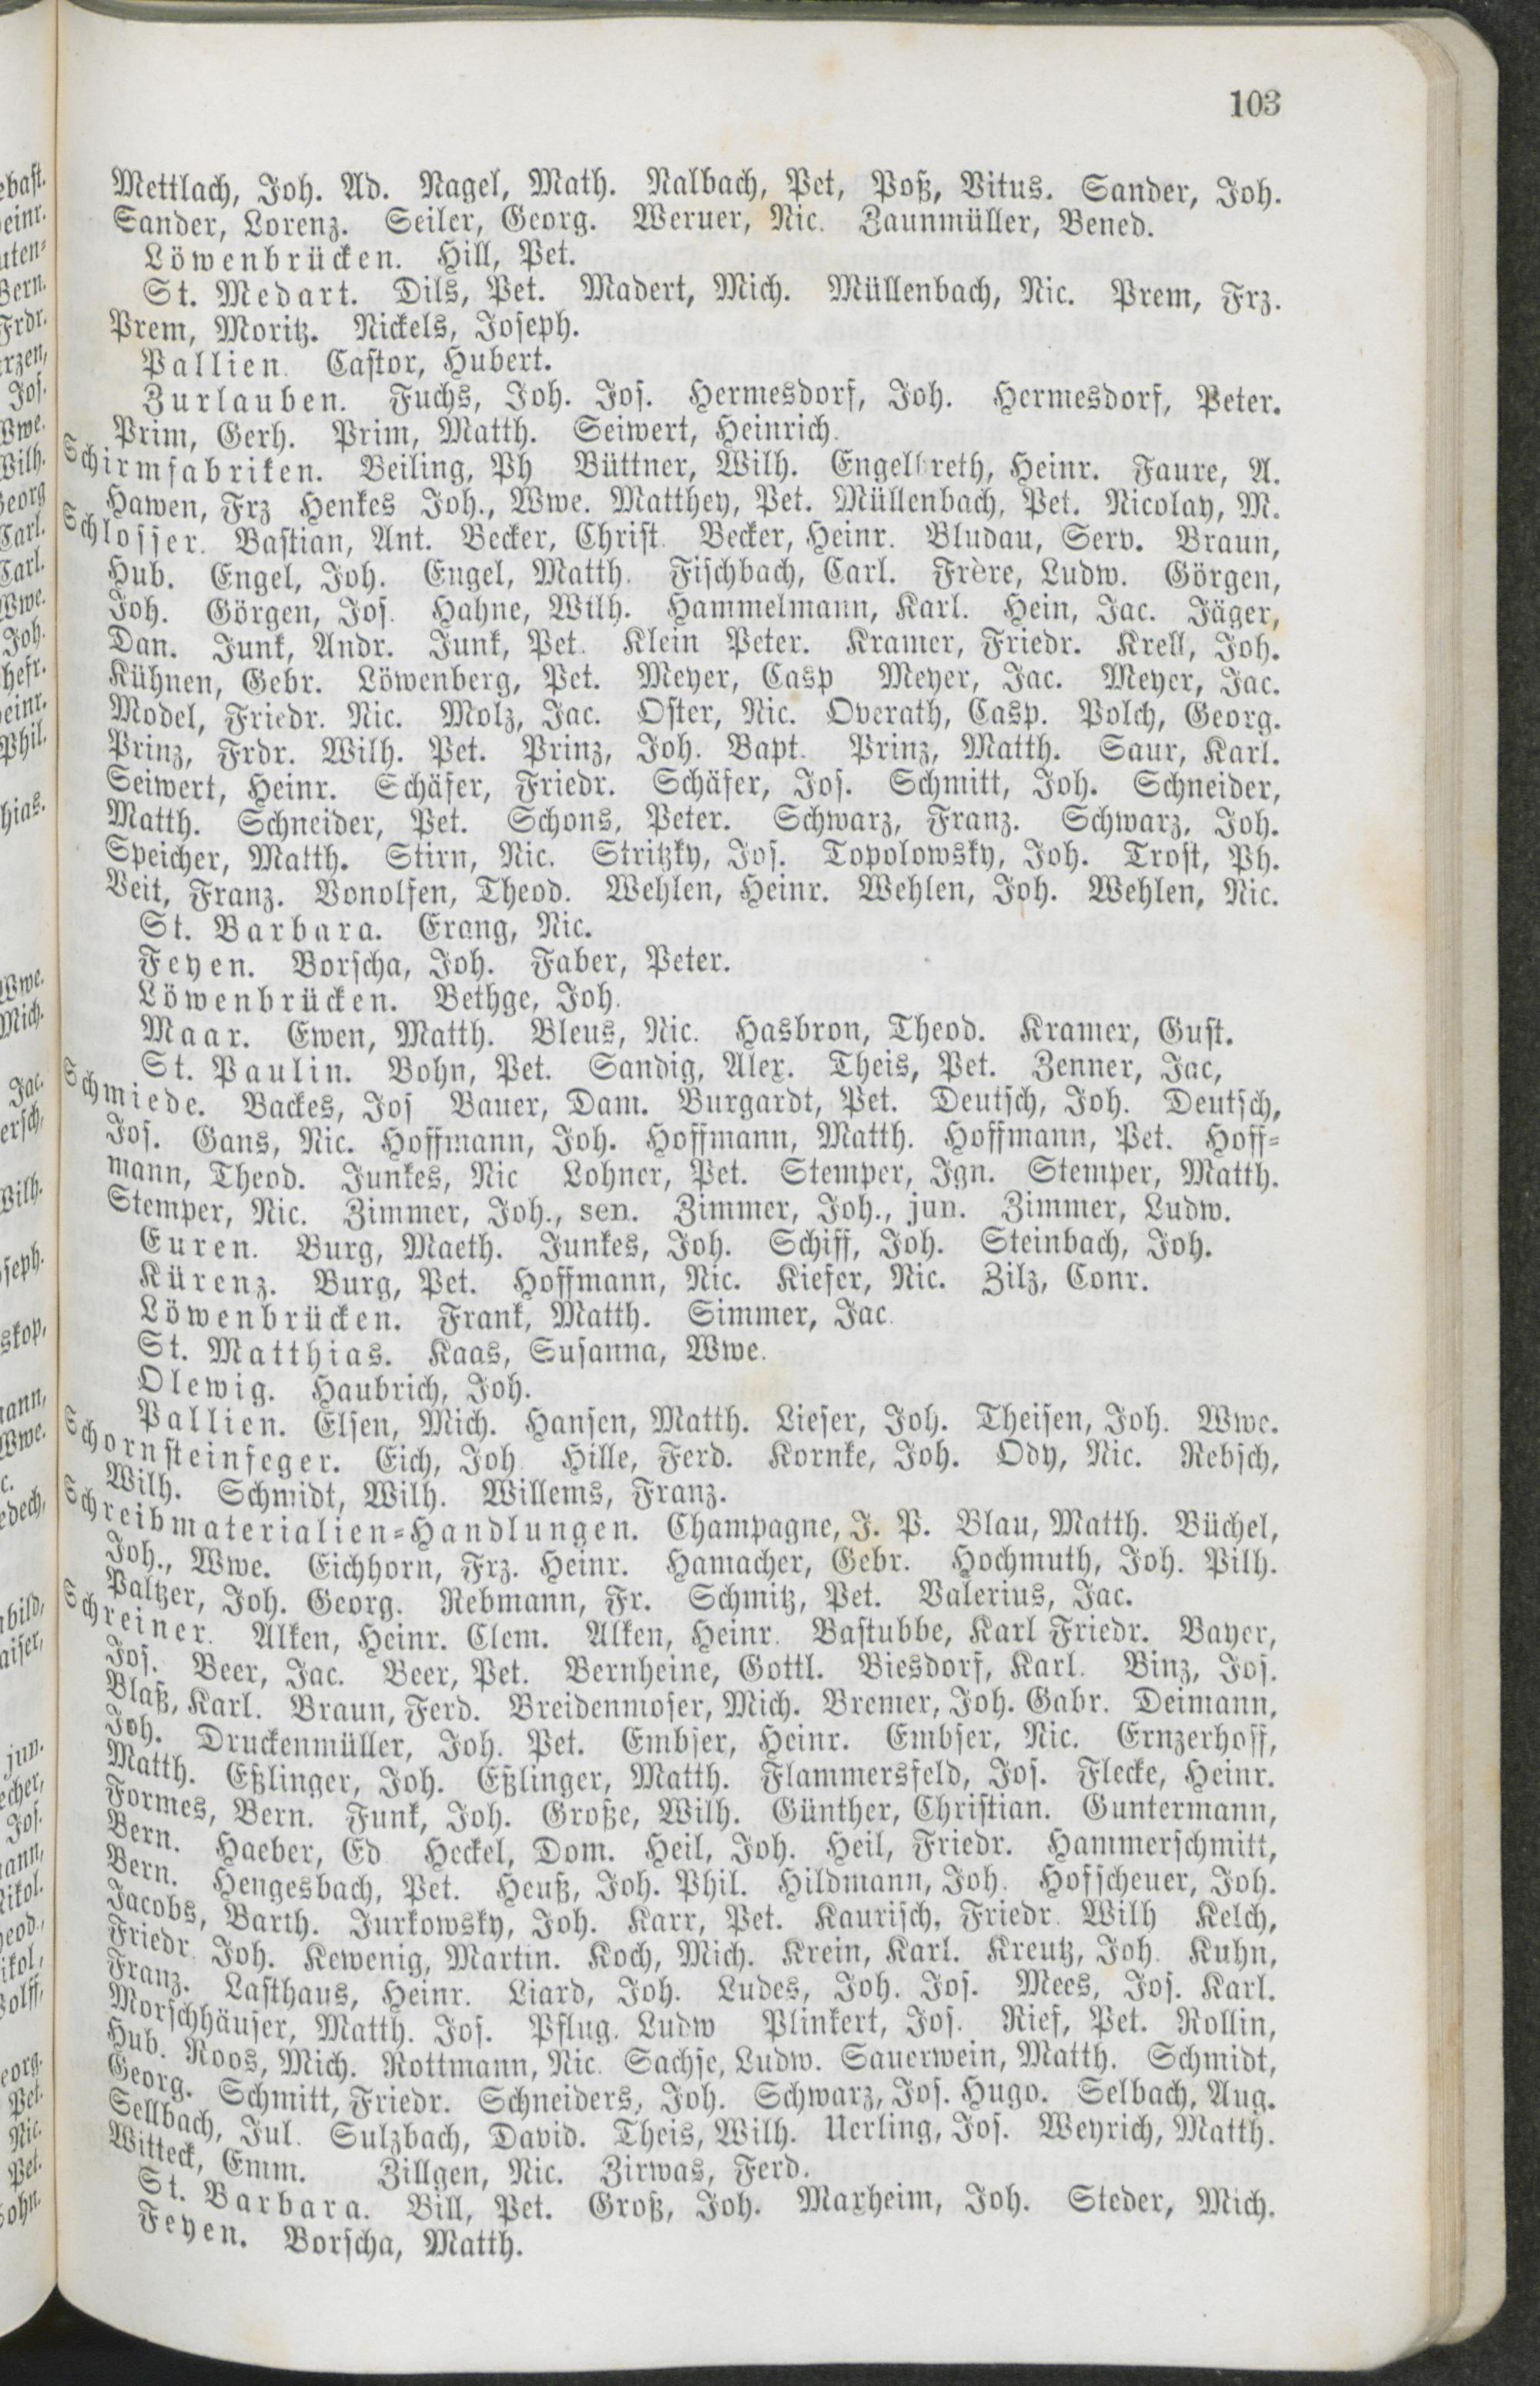 103
Mettlach, Joh. Ad. Nagel, Math. Nalbach, Pet, Poß, Vitus. Sander, Joh.
Sander, Lorenz. Seiler, Georg. Weruer, Nic. Zaunmüller, Bened.
Löwenbrücken. Hill, Pet.
St. Medart. Dils, Pet. Madert, Mich. Müllenbach, Nic. Prem, Frz.
Prem, Moritz. Nickels, Joseph.
Pallien. Castor, Hubert.
Zurlauben. Fuchs, Joh. Jos. Hermesdorf, Joh. Hermesdorf, Peter.
Prim, Gerh. Prim, Matth. Seiwert, Heinrich.
Schirmfabriken. Beiling, Ph Büttner, Wilh. Engelbreth, Heinr. Faure, A.
Hawen, Frz Henkes Joh., Wwe. Matthey, Pet. Müllenbach, Pet. Nicolay, M.
Schlosser. Bastian, Ant. Becker, Christ. Becker, Heinr. Bludau, Serv. Braun,
Hub. Engel, Joh. Engel, Matth. Fischbach, Carl. Frère, Ludw. Görgen,
Joh. Görgen, Jos. Hahne, Wilh. Hammelmann, Karl. Hein, Jac. Jäger,
Dan. Junk, Andr. Junk, Pet. Klein Peter. Kramer, Friedr. Krell, Joh.
Kühnen, Gebr. Löwenberg, Pet. Meyer, Casp Meyer, Jac. Meyer, Jac.
Model, Friedr. Nic. Molz, Jac. Oster, Nic. Overath, Casp. Polch, Georg.
Prinz, Frdr. Wilh. Pet. Prinz, Joh. Bapt. Prinz, Matth. Saur, Karl.
Seiwert, Heinr. Schäfer, Friedr. Schäfer, Jos. Schmitt, Joh. Schneider,
Matth. Schneider, Pet. Schons, Peter. Schwarz, Franz. Schwarz, Joh.
Speicher, Matth. Stirn, Nic. Stritzky, Jos. Topolowsky, Joh. Trost, Ph.
Veit, Franz. Vonolfen, Theod. Wehlen, Heinr. Wehlen, Joh. Wehlen, Nic.
St. Barbara. Erang, Nic.
Feyen. Borscha, Joh. Faber, Peter.
Löwenbrücken. Bethge, Joh.
Maar. Ewen, Matth. Bleus, Nic. Hasbron, Theod. Kramer, Gust.
St. Paulin. Bohn, Pet. Sandig, Alex. Theis, Pet. Zenner, Jac,
Schmiede. Backes, Jos Bauer, Dam. Burgardt, Pet. Deutsch, Joh. Deutsch,
Jos. Gans, Nic. Hoffmann, Joh. Hoffmann, Matth. Hoffmann, Pet. Hoff-
mann, Theod. Junkes, Nic Lohner, Pet. Stemper, Ign. Stemper, Matth.
Stemper, Nic. Zimmer, Joh., sen. Zimmer, Joh., jun. Zimmer, Ludw.
Euren. Burg, Maeth. Junkes, Joh. Schiff, Joh. Steinbach, Joh.
Kürenz. Burg, Pet. Hoffmann, Nic. Kiefer, Nic. Zilz, Conr.
Löwenbrücken. Frank, Matth. Simmer, Jac.
St. Matthias. Kaas, Susanna, Wwe.
Olewig. Haubrich, Joh.
Pallien. Elsen, Mich. Hansen, Matth. Lieser, Joh. Theisen, Joh. Wwe.
Schornsteinfeger. Eich, Joh Hille, Ferd. Kornke, Joh. Ody, Nic. Rebsch,
Wilh. Schmidt, Wilh. Willems, Franz.
Schreibmaterialien-Handlungen. Champagne, J. P. Blau, Matth. Büchel,
Joh., Wwe. Eichhorn, Frz. Heinr. Hamacher, Gebr. Hochmuth, Joh. Pilh.
Paltzer, Joh. Georg. Rebmann, Fr. Schmitz, Pet. Valerius, Jac.
Schreiner. Alken, Heinr. Clem. Alken, Heinr. Bastubbe, Karl Friedr. Bayer,
Jos. Beer, Jac. Beer, Pet. Bernheine, Gottl. Biesdorf, Karl. Binz, Jos.
Blaß, Karl. Braun, Ferd. Breidenmoser, Mich. Bremer, Joh. Gabr. Deimann,
Joh. Druckenmüller, Joh. Pet. Embser, Heinr. Embser, Nic. Ernzerhoff,
Matth. Eßlinger, Joh. Eßlinger, Matth. Flammersfeld, Jos. Flecke, Heinr.
Formes, Bern. Funk, Joh. Große, Wilh. Günther, Christian. Guntermann,
Bern. Haeber, Ed Heckel, Dom. Heil, Joh. Heil, Friedr. Hammerschmitt,
Bern. Hengesbach, Pet. Heuß, Joh. Phil. Hildmann, Joh. Hofscheuer, Joh.
Jacobs, Barth. Jurkowsky, Joh. Karr, Pet. Kaurisch, Friedr. Wilh Kelch,
Friedr. Joh. Kewenig, Martin. Koch, Mich. Krein, Karl. Kreutz, Joh. Kuhn,
Franz. Lasthaus, Heinr. Liard, Joh. Ludes, Joh. Jos. Mees, Jos. Karl.
Morschhäuser, Matth. Jos. Pflug. Ludw Plinkert, Jos. Rief, Pet. Rollin,
Hub. Roos, Mich. Rottmann, Nic. Sachse, Ludw. Sauerwein, Matth. Schmidt,
Georg. Schmitt, Friedr. Schneiders, Joh. Schwarz, Jos. Hugo. Selbach, Aug.
Sellbach, Jul. Sulzbach, David. Theis, Wilh. Uerling, Jos. Weyrich, Matth.
Witteck, Emm. Zillgen, Nic. Zirwas, Ferd.
St. Barbara. Bill, Pet. Groß, Joh. Marheim, Joh. Steder, Mich.
Feyen. Borscha, Matth.